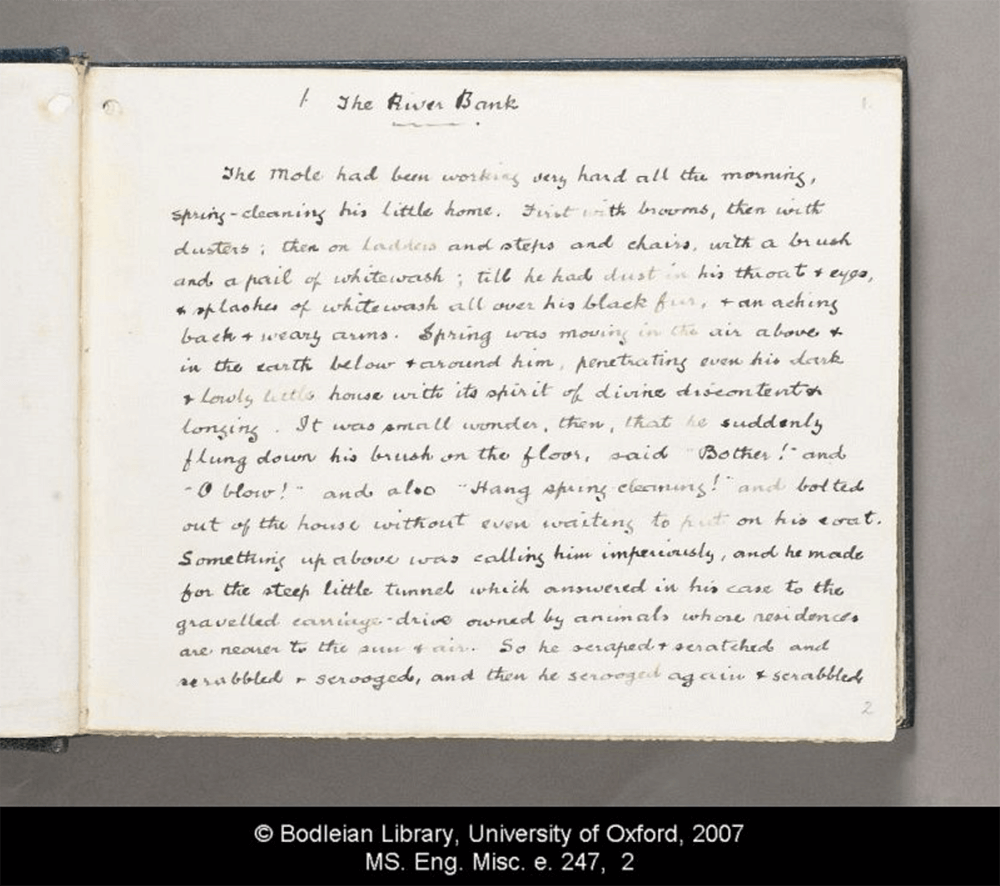 1. The River Bank
1.
The Mole had been working very hard all the morning,
spring-cleaning his little home. First with brooms, then with
dusters; then on ladders and steps and chairs, with a brush
and a pail of whitewash; till he had dust in his throat & eyes,
& splashes of whitewash all over his black fur, & an aching
back & weary arms. Spring was moving in the air above &
in the earth below & around him, penetrating even his dark
& lowly little house with its spirit of divine discontent &
longing. It was small wonder, then, that he suddenly
flung down his brush on the floor, said "Bother!" and
"O blow!" and also "Hang spring-cleaning!" and bolted
out of the house without even waiting to put on his coat.
Something up above was calling him imperiously, and he made
for the steep little tunnel which answered in his case to the
gravelled carriage-drive owned by animals whose residences
are nearer to the sun & air. So he scraped & scratched and
scrabbled & scrooged, and then he scrooged again & scrabbled
2
© Bodleian Library, University of Oxford, 2007
MS. Eng. Misc. e. 247, 2